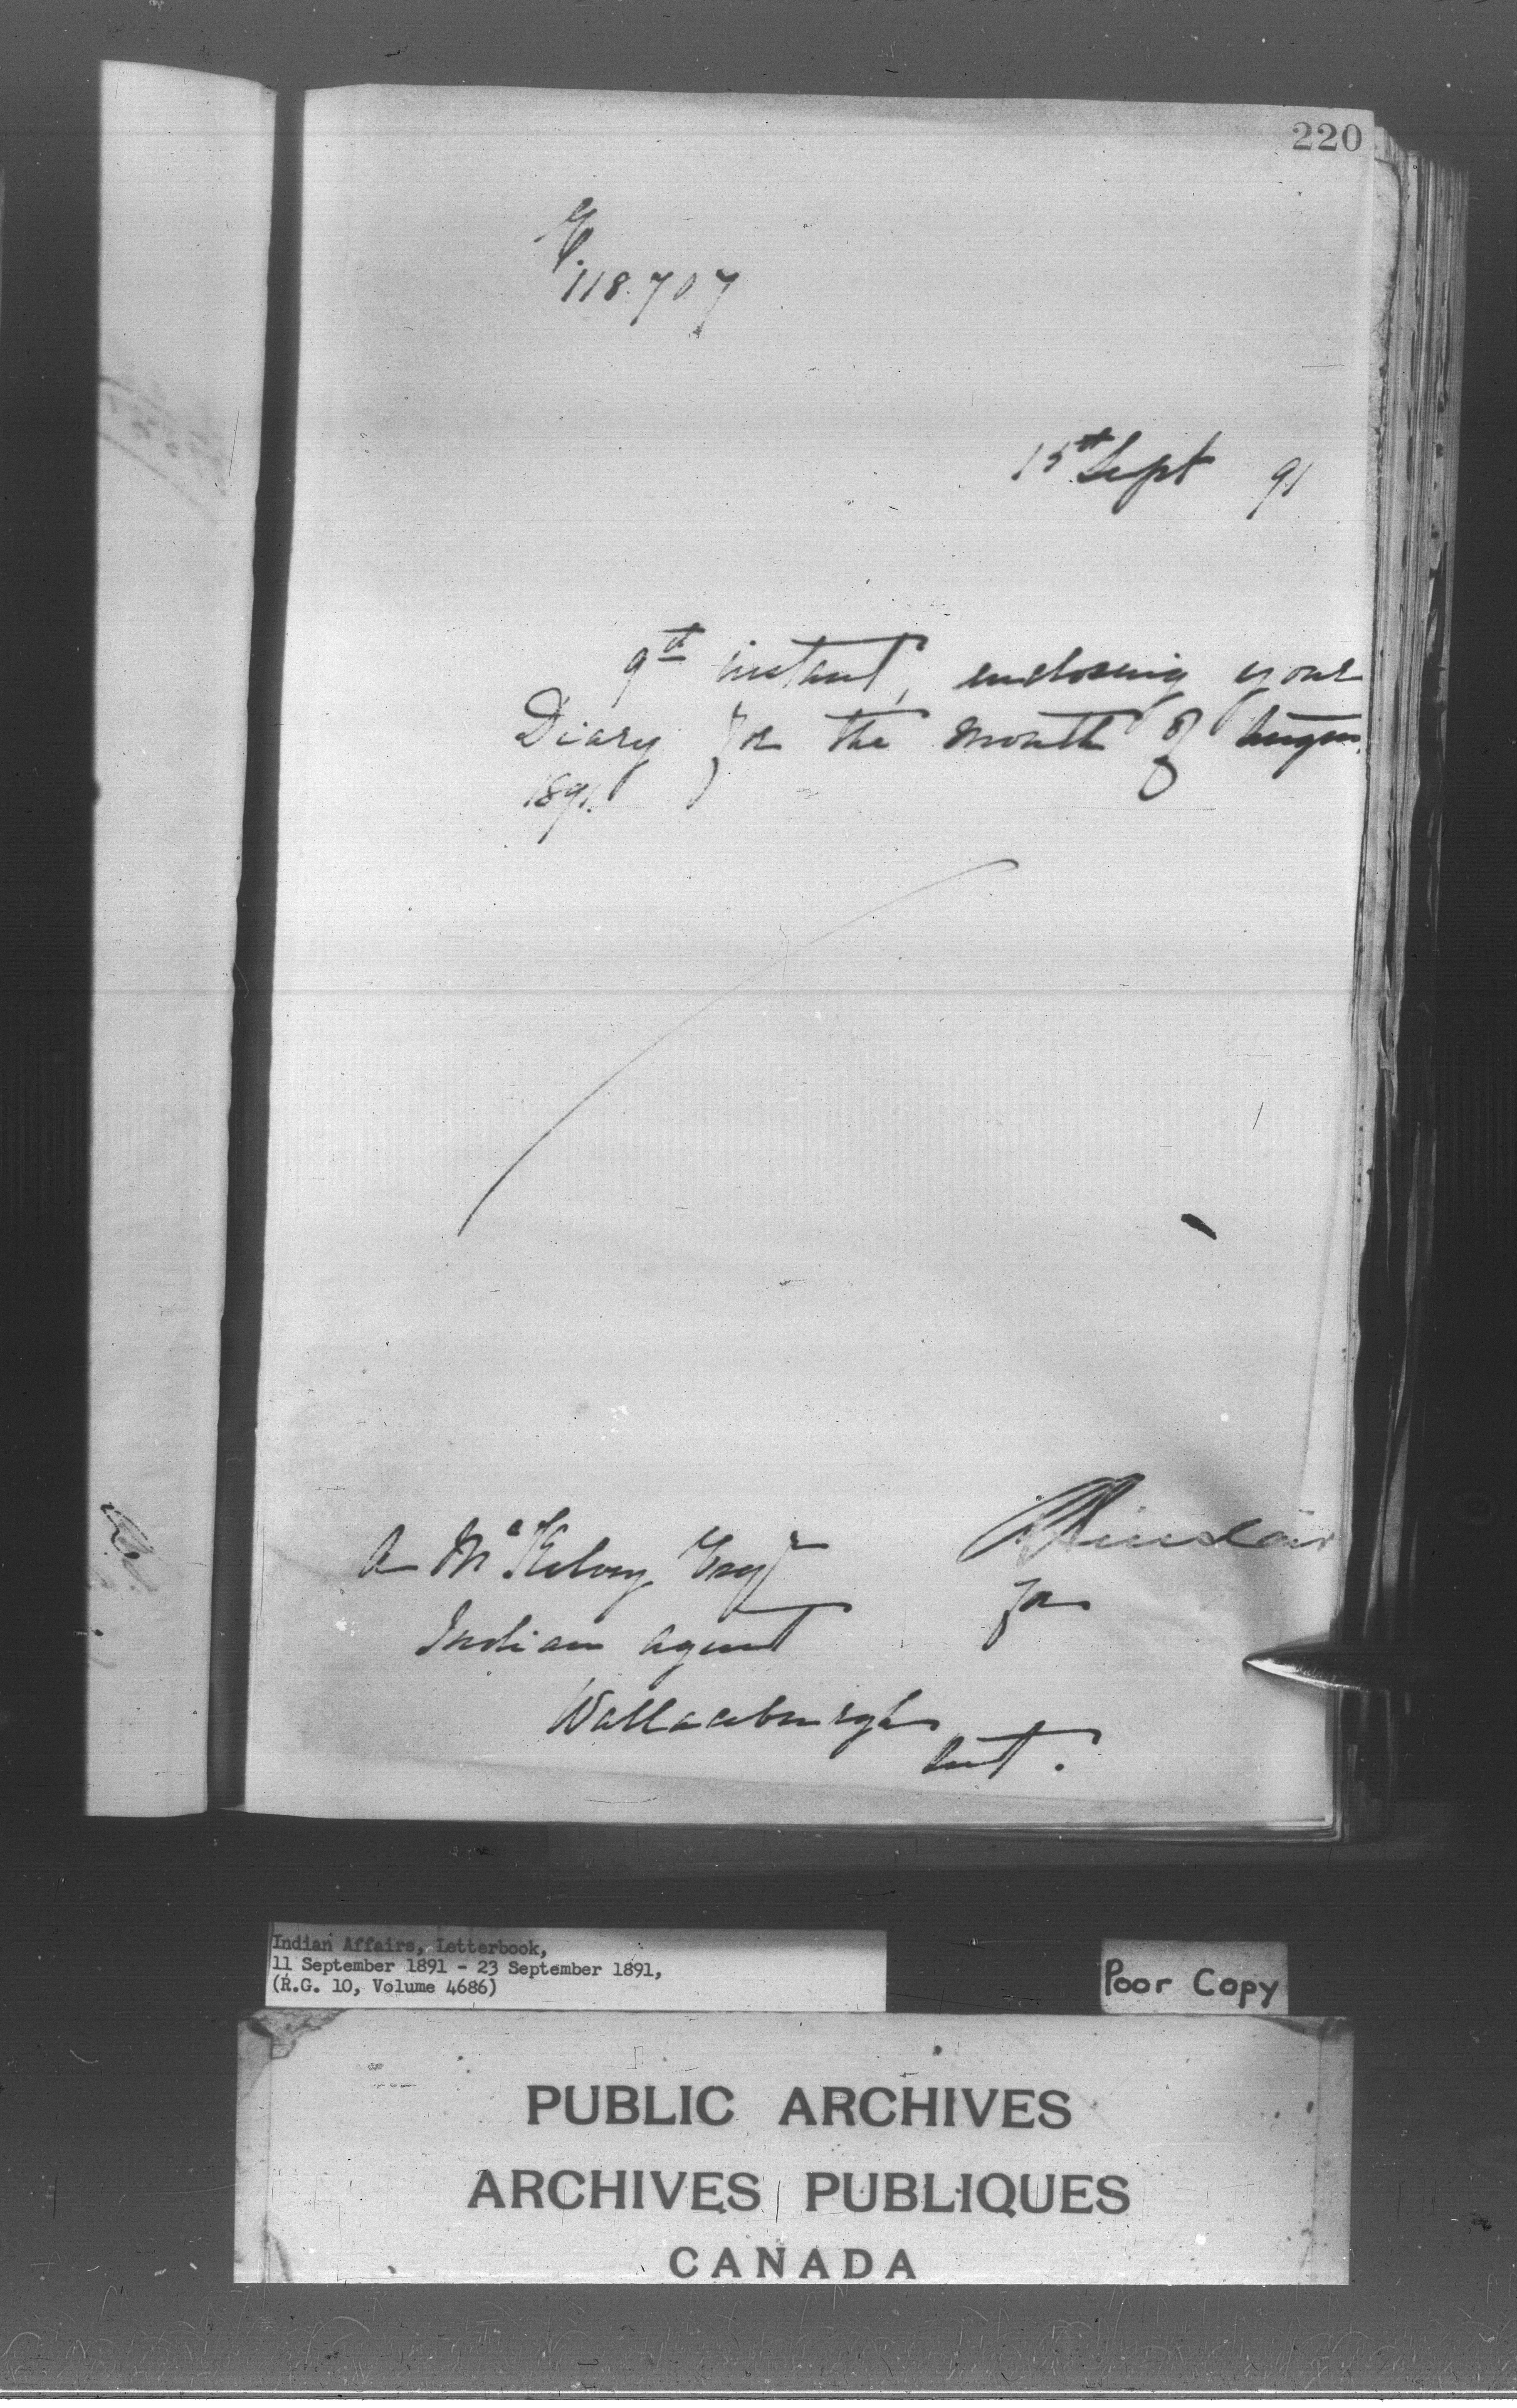 220
118707
15th Sept 91
9th instant, enclosing your
Diary for the month of August
1891.
A McKelvey Esqr
Sinclair
for
Indian Agent
Wallaceburgh
Ont.
Indian Affairs, Letterbook,
11 September 1891 - 23 September 1891,
(R.G. 10, Volume 4686)
Poor Copy
PUBLIC ARCHIVES
ARCHIVES PUBLIQUES
CANADA